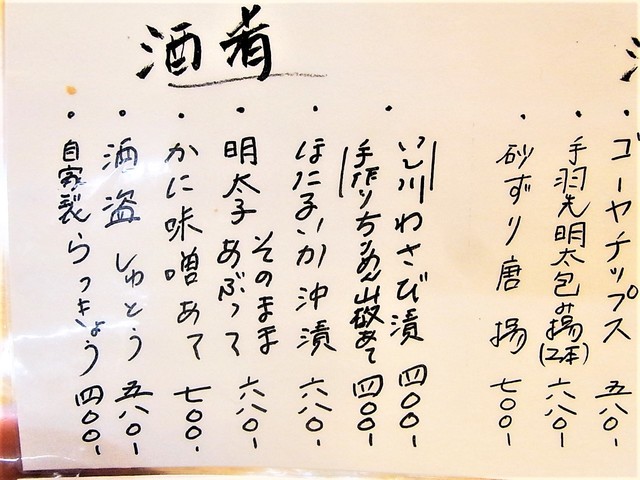 ゴーヤチップス 五八〇
手羽先明太包み揚(2本) 六八〇-
砂ずり唐揚 七〇〇-
酒肴
・わさび漬 四〇〇-
・手作りちりめん山椒あて 四〇〇-
・ほたるいか沖漬 六八〇-
・明太子 そのまま あぶって 六八〇-
・かに味噌あて 七〇〇-
・酒盗 しゅとう 五八〇-
・自家製らっきょう 四〇〇-